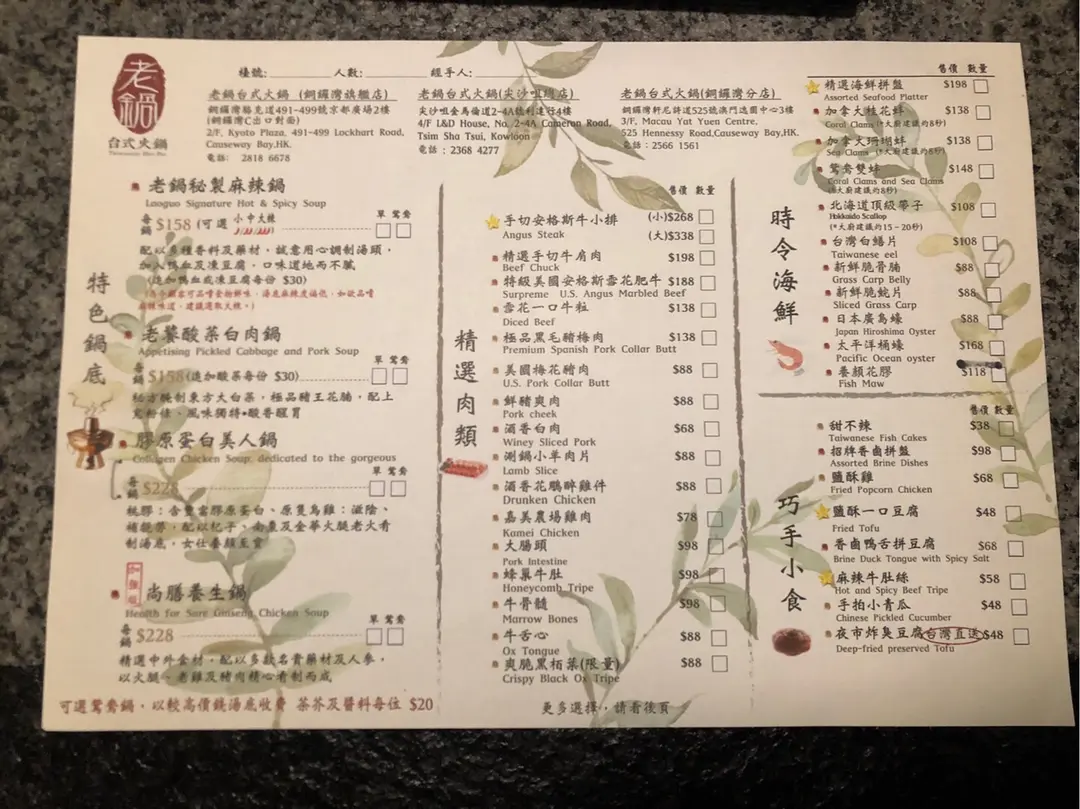 老鍋
台式火鍋
Taiwanese Hot Pot
檯號:________ 人數:________ 經手人:________
老鍋台式火鍋 (銅鑼灣旗艦店)
銅鑼灣駱克道491-499號京都廣場2樓
(銅鑼灣C出口對面)
2/F, Kyoto Plaza, 491-499 Lockhart Road,
Causeway Bay,HK.
電話: 2818 6678
老鍋台式火鍋(尖沙咀
店)
尖沙咀金馬倫道2-4A號利達行4樓
4/F L&D House, No. 2-4A Cameron Road,
Tsim Sha Tsui, Kowloon
電話 : 2368 4277
老鍋台式火鍋(銅鑼灣分店)
銅鑼灣軒尼詩道525號澳門逸園中心3樓
3/F, Macau Yat Yuen Centre,
525 Hennessy Road,Causeway Bay,HK.
電話 : 2566 1561
特色鍋底
老鍋秘製麻辣鍋
Laoguo Signature Hot & Spicy Soup
每鍋 $158 (可選 小 中 大辣 單 鴛鴦
配以多種香料及藥材，誠意用心調制湯頭，
加入鴨血及凍豆腐，口味道地而不膩
(追加鴨血或凍豆腐每份 $30)
老饕酸菜白肉鍋
Appetising Pickled Cabbage and Pork Soup
每鍋 $158(追加酸菜每份 $30) 單 鴛鴦
秘方腌制東方大白菜，極品豬王花腩，配上
寬粉條，風味獨特•酸香醒胃
膠原蛋白美人鍋
Collagen Chicken Soup, dedicated to the gorgeous
每鍋 $228 單 鴛鴦
桃膠：含豐富膠原蛋白、原隻烏雞：滋陰、
補
，配以杞子、南棗及金華火腿老火肴
制湯底，女仕養顏至寶
加強版
尚膳養生鍋
Health for Sure Ginseng Chicken Soup
每鍋 $228 單 鴛鴦
精選中外食材，配以多款名貴藥材及人參，
以火腿、老雞及豬肉精心肴制而成
可選鴛鴦鍋，以較高價錢湯底收費 茶芥及醬料每位 $20
精選肉類
售價 數量
手切安格斯牛小排 (小)$268
Angus Steak (大)$338
精選手切牛肩肉 $198
Beef Chuck
特級美國安格斯雪花肥牛 $188
Surpreme U.S. Angus Marbled Beef
雪花一口牛粒 $138
Diced Beef
極品黑毛豬梅肉 $138
Premium Spanish Pork Collar Butt
美國梅花豬肉 $88
U.S. Pork Collar Butt
鮮豬爽肉 $88
Pork cheek
酒香白肉 $68
Winey Sliced Pork
涮鍋小羊肉片 $88
Lamb Slice
酒香花鵰醉雞件 $88
Drunken Chicken
嘉美農場雞肉 $78
Kamei Chicken
大腸頭 $98
Pork Intestine
蜂巢牛肚 $98
Honeycomb Tripe
牛骨髓 $98
Marrow Bones
牛舌心 $88
Ox Tongue
爽脆黑栢葉(限量) $88
Crispy Black Ox Tripe
更多選擇，請看後頁
時令海鮮
售價 數量
精選海鮮拼盤 $198
Assorted Seafood Platter
加拿大桂花蚌 $138
Coral Clams (*大廚建議約8秒)
加拿大珊瑚蚌 $138
Sea Clams (*大廚建議約8秒)
鴛鴦雙蚌 $148
Coral Clams and Sea Clams
(*大廚建議約8秒)
北海道頂級帶子 $108
Hokkaido Scallop
(*大廚建議約15-20秒)
台灣白鱔片 $108
Taiwanese eel
新鮮脆骨腩 $88
Grass Carp Belly
新鮮脆鯇片 $88
Sliced Grass Carp
日本廣島蠔 $88
Japan Hiroshima Oyster
太平洋桶蠔 $168
Pacific Ocean oyster
養顏花膠 $118
Fish Maw
巧手小食
售價 數量
甜不辣 $38
Taiwanese Fish Cakes
招牌香鹵拼盤 $98
Assorted Brine Dishes
鹽酥雞 $68
Fried Popcorn Chicken
鹽酥一口豆腐 $48
Fried Tofu
香鹵鴨舌拼豆腐 $68
Brine Duck Tongue with Spicy Salt
麻辣牛肚絲 $58
Hot and Spicy Beef Tripe
手拍小青瓜 $48
Chinese Pickled Cucumber
夜市炸臭豆腐 台灣直送 $48
Deep-fried preserved Tofu